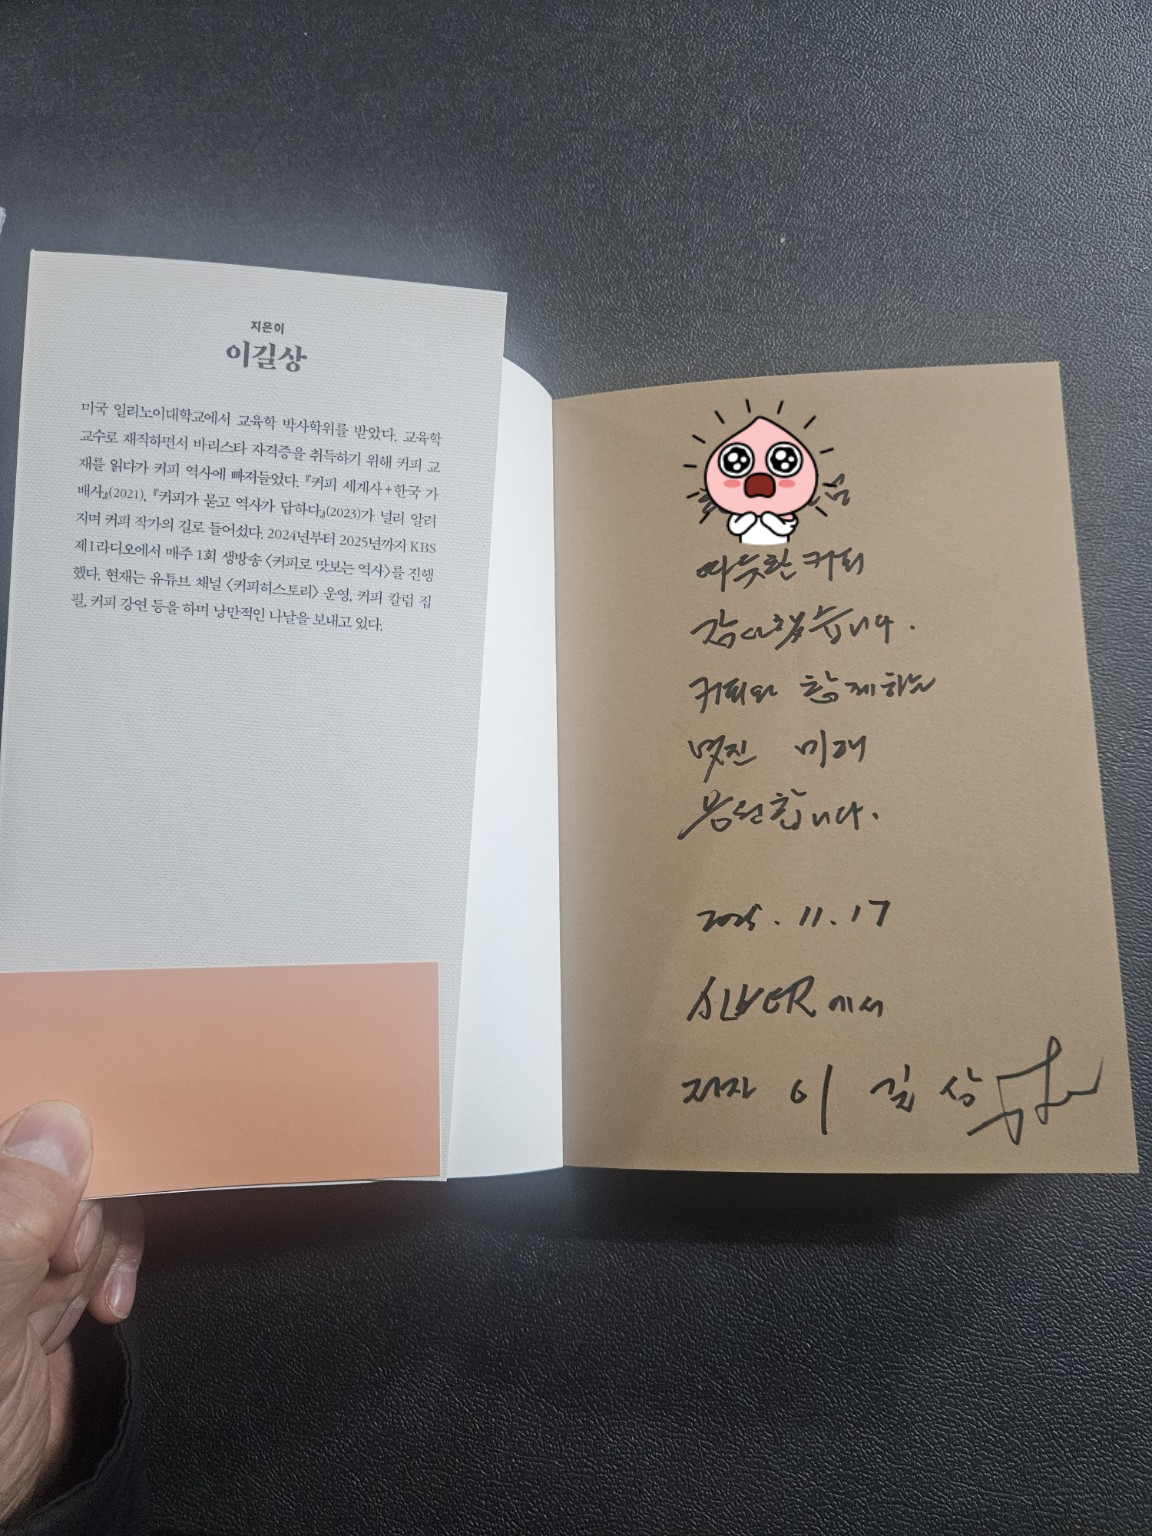 지은이
이길상
미국 일리노이대학교에서 교육학 박사학위를 받았다. 교육학
교수로 재직하면서 바리스타 자격증을 취득하기 위해 커피 교
재를 읽다가 커피 역사에 빠져들었다. 『커피 세계사+한국 가
배사』(2021), 『커피가 묻고 역사가 답하다』(2023)가 널리 알려
지며 커피 작가의 길로 들어섰다. 2024년부터 2025년까지 KBS
제1라디오에서 매주 1회 생방송 〈커피로 맛보는 역사〉를 진행
했다. 현재는 유튜브 채널 〈커피히스토리〉 운영, 커피 칼럼 집
필, 커피 강연 등을 하며 낭만적인 나날을 보내고 있다.
님
따뜻한 커피
감사했습니다.
커피와 함께하는
멋진 미래
응원합니다.
2025. 11. 17
SILVER에서
저자 이길상